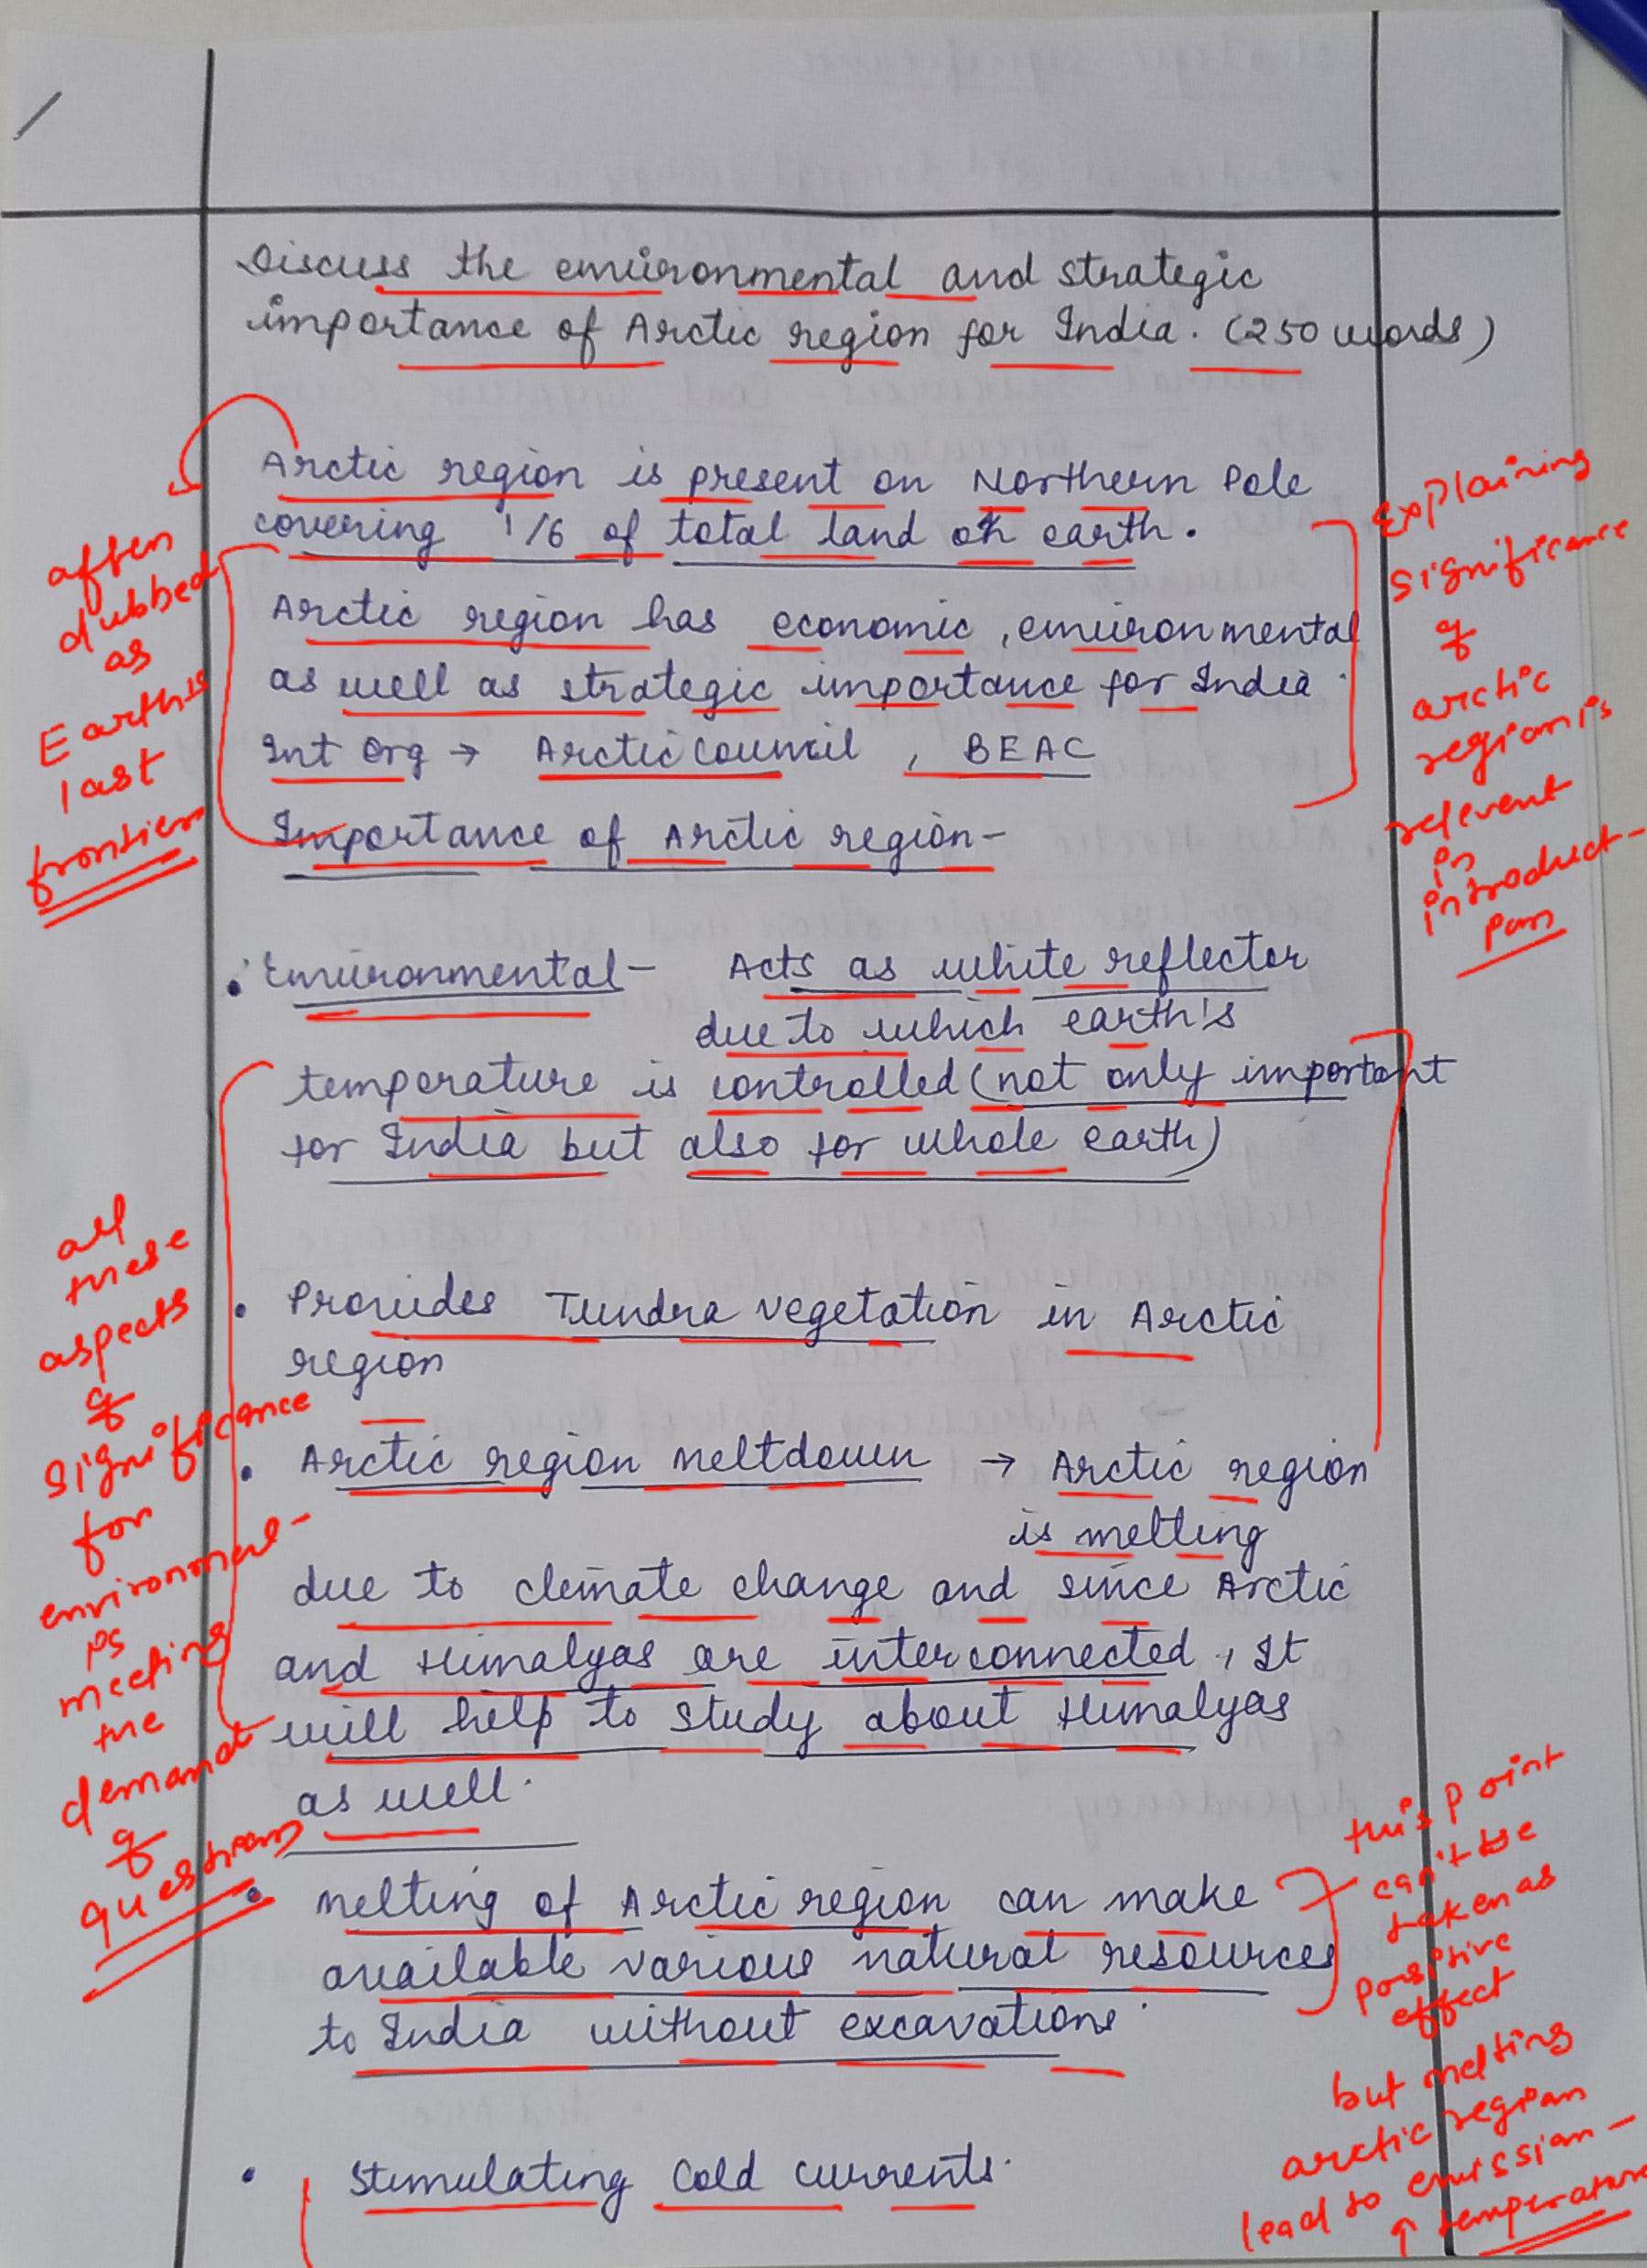 Discuss the environmental and strategic
importance of Arctic region for India. (250 words)
Arctic region is present on Northern Pole
covering 1/6 of total land on earth.
Arctic region has economic, environmental
as well as strategic importance for India.
Int Org → Arctic Council, BEAC
Importance of Arctic region-
often
dubbed
as
Earth's
last
frontier
Explaining
significance
of
arctic
region is
relevent
in
introduct-
ion
• Environmental - Acts as white reflector
due to which earth's
temperature is controlled (not only important
for India but also for whole earth)
• Provides Tundra vegetation in Arctic
region
• Arctic region meltdown → Arctic region
is melting
due to climate change and since Arctic
and Himalyas are interconnected, It
will help to study about Himalyas
as well.
all
these
aspects
of
significance
for
environmental-
is
meeting
the
demand
of
question
• Melting of Arctic region can make
available various natural resources
to India without excavations.
this point
can't be
taken as
positive
effect
but melting
arctic region
lead to emission-
↑ temperature
• Stimulating Cold Currents.